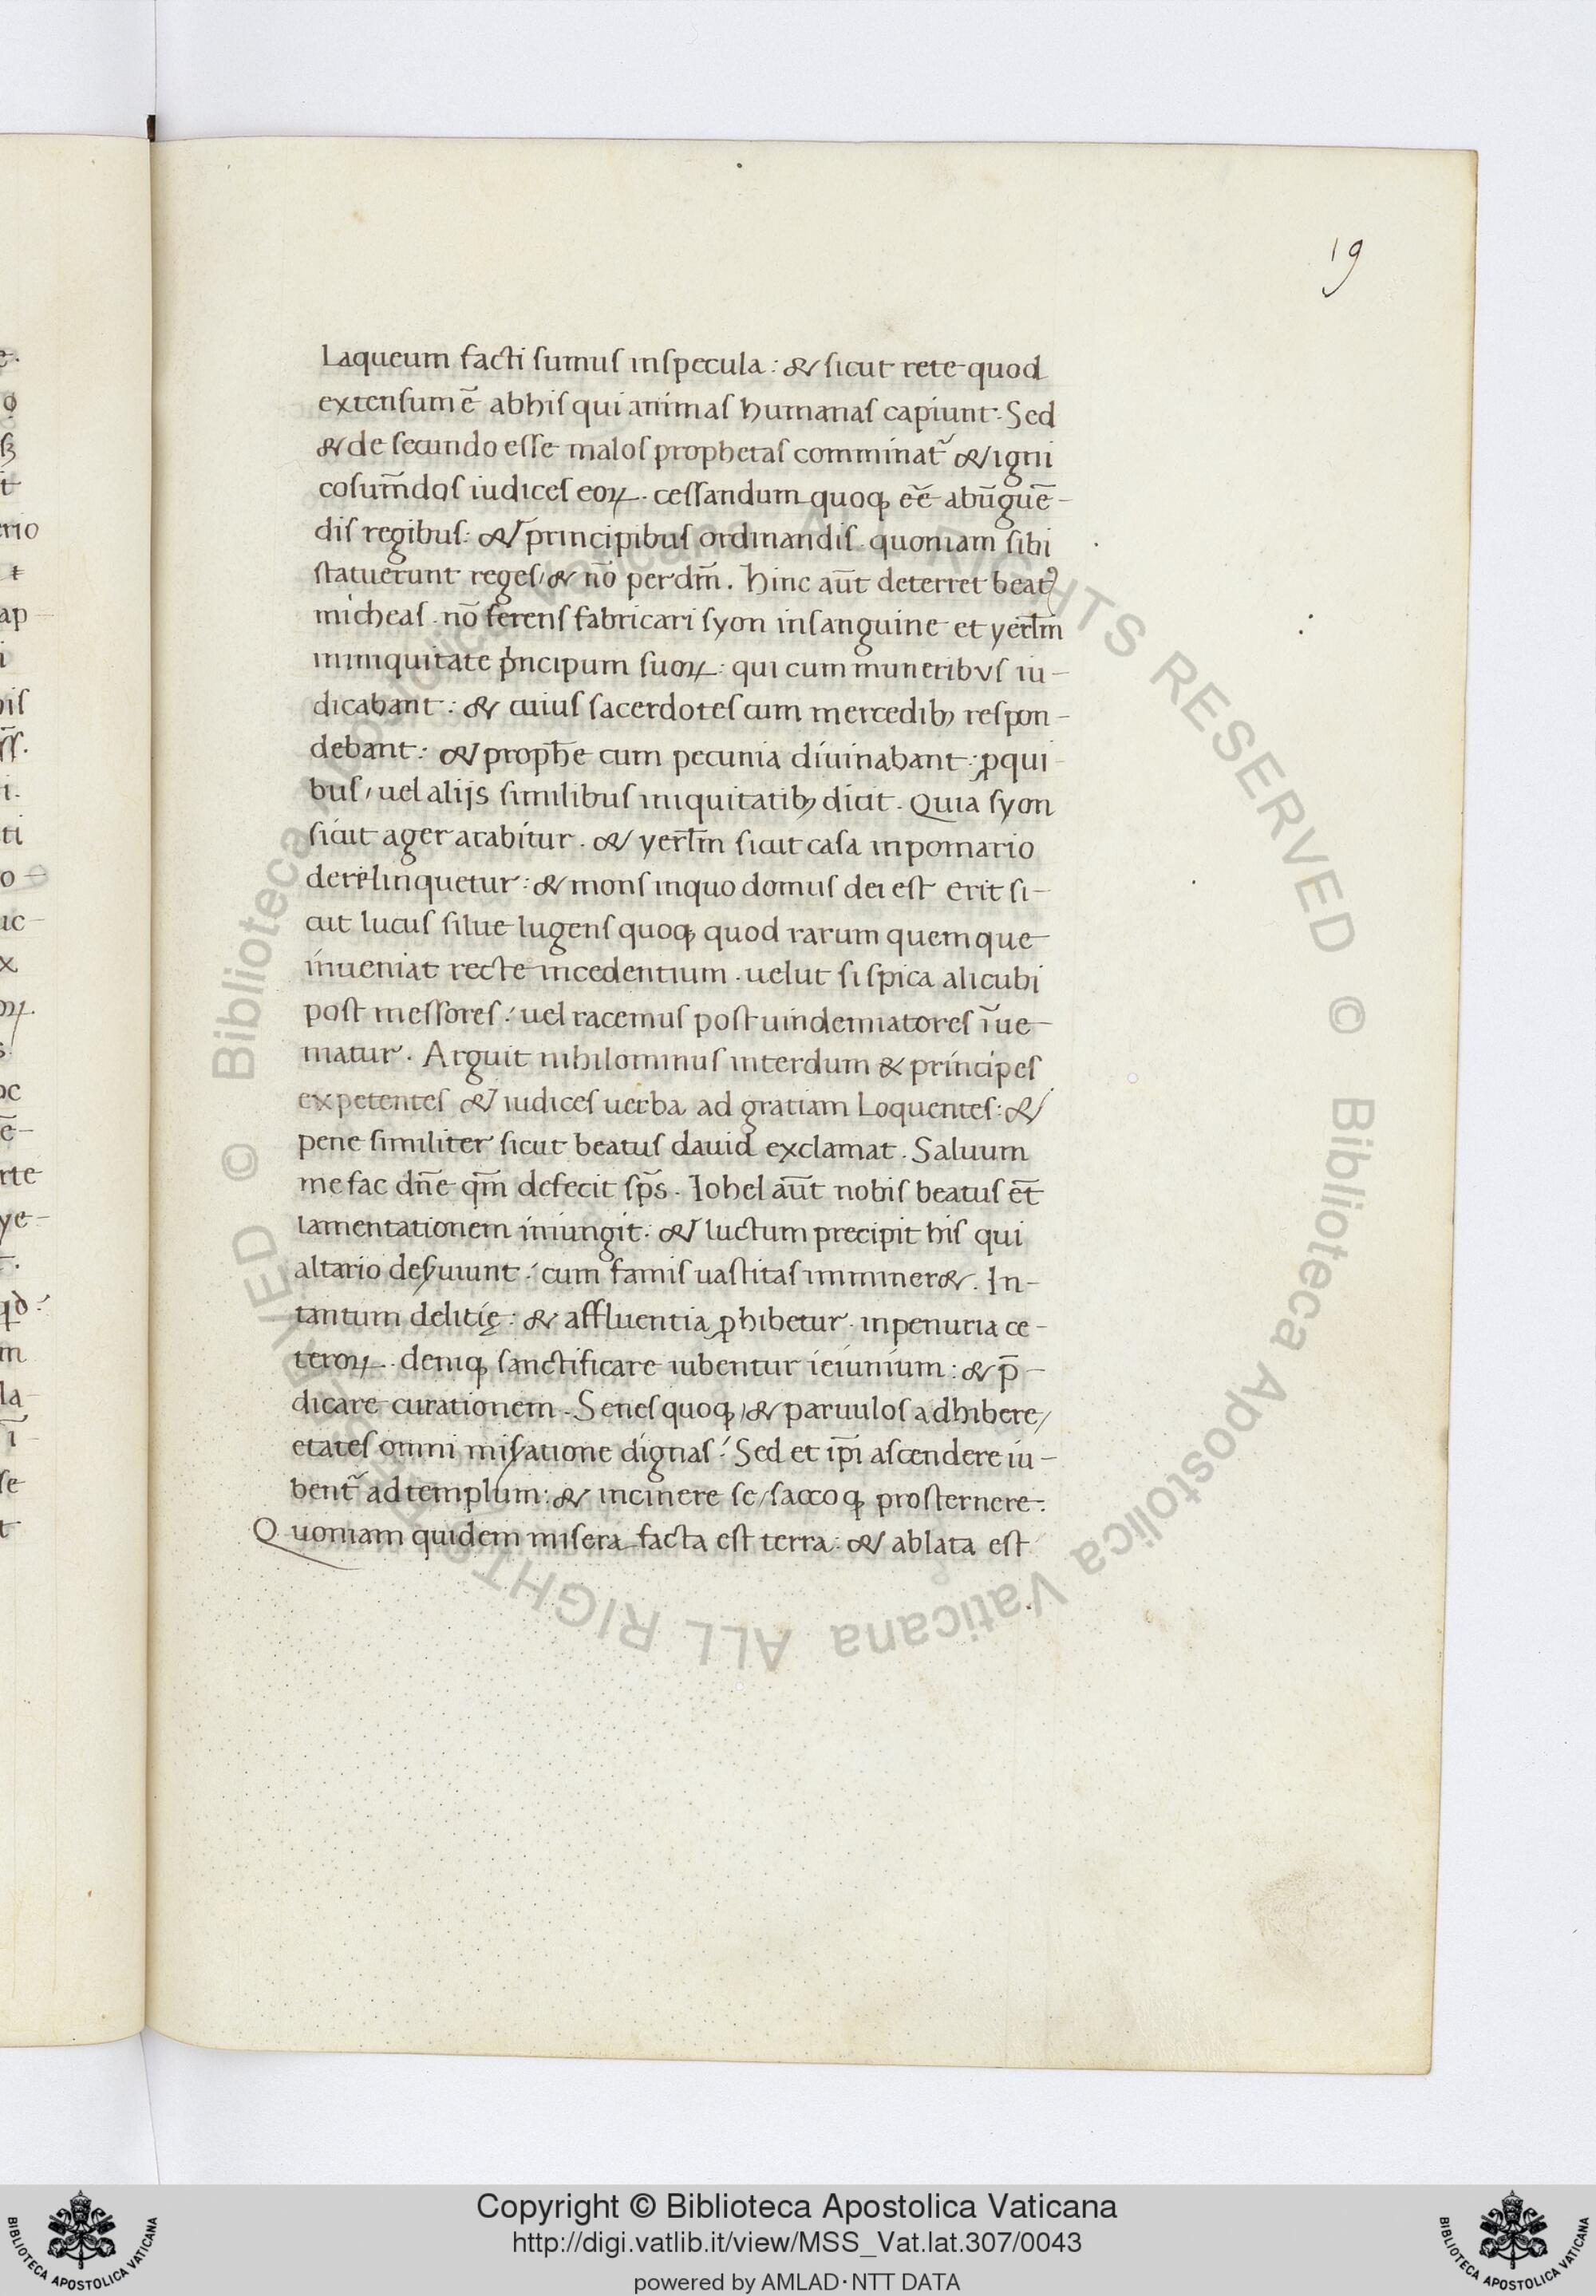 19
Laqueum facti sumus inspecula: & sicut rete quod
extensum ē abhis qui animas humanas capiunt. Sed
& de secundo esse malos prophetas comminat᷑ & igni
cosum̄dos iudices eoꝝ. cessandum quoqꝫ eē abūguē-
dis regibus: & principibus ordinandis. quoniam sibi
statuerunt reges, & nō per dm̄. hinc aūt deterret beatꝰ
micheas. nō ferens fabricari syon insanguine et yerl̄m
ininiquitate pͥncipum suoꝝ: qui cum muneribus iu-
dicabant: & cuius sacerdotes cum mercedibꝫ respon-
debant: & proph̄e cum pecunia diuinabant: ꝓqui
bus, uel alijs similibus iniquitatibꝫ dicit. Quia syon
sicut ager arabitur. & yerl̄m sicut casa inpomario
derelinquetur: & mons inquo domus dei est erit si-
cut lucus silue lugens quoqꝫ quod rarum quemque
inueniat recte incedentium. uelut si spica alicubi
post messores: uel racemus post uindemiatores īue-
niatur. Arguit nihilominus interdum & principes
expetentes & iudices uerba ad gratiam Loquentes: &
pene similiter sicut beatus dauid exclamat. Saluum
me fac dn̄e qm̄ defecit sp̄s. Iohel aūt nobis beatus et̄
lamentationem iniungit: & luctum precipit his qui
altario deẜuiunt: cum famis uastitas immineret. In-
tantum delitię: & affluentia ꝓhibetur. inpenuria ce-
teroꝝ. deniqꝫ sanctificare iubentur ieiunium: & p̄-
dicare curationem. Senes quoqꝫ, & paruulos adhibere,
etates omni miẜatione dignas: Sed et ip̄i ascendere iu-
bent᷑ ad templum: & incinere se, saccoqꝫ prosternere.
Quoniam quidem misera facta est terra: & ablata est
© Biblioteca Apostolica Vaticana ALL RIGHTS RESERVED © Biblioteca Apostolica Vaticana ALL RIGHTS RESERVED
Copyright © Biblioteca Apostolica Vaticana
http://digi.vatlib.it/view/MSS_Vat.lat.307/0043
powered by AMLAD·NTT DATA
BIBLIOTECA APOSTOLICA VATICANA
BIBLIOTECA APOSTOLICA VATICANA